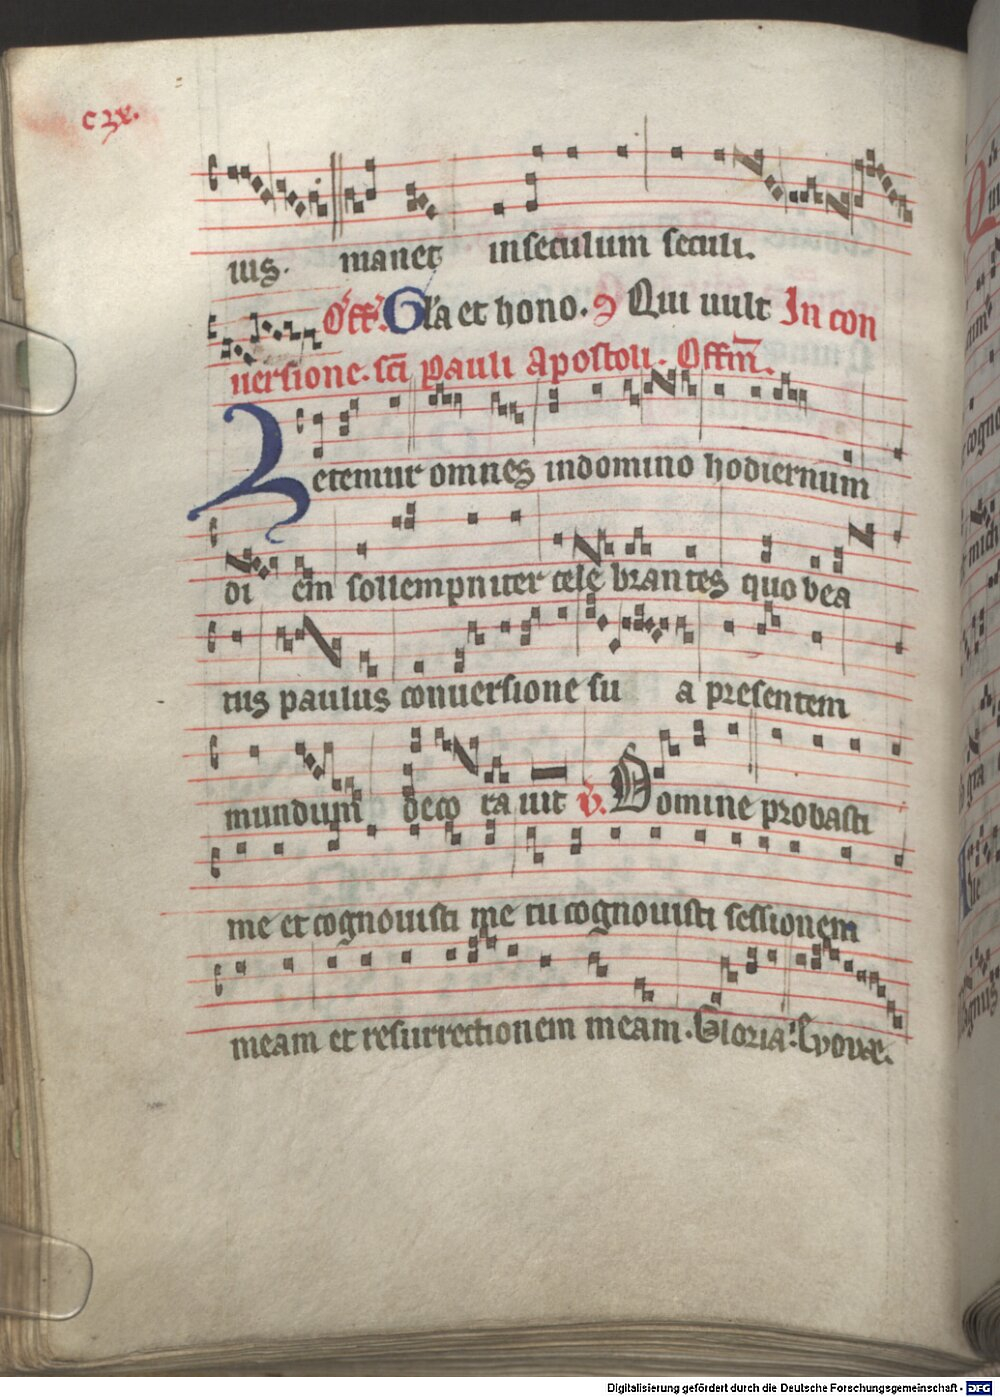 cxx.
ius. manet inseculum seculi.
Off. Gla et hono. Co Qui uult In con
uersione. sci pauli apostoli. Offm.
Letemur omnes indomino hodiernum
di em sollempniter cele brantes quo bea
tus paulus conuersione su a presentem
mundum deco ra uit V. Domine probasti
me et cognouisti me tu cognouisti sessionem
meam et resurrectionem meam. Gloria. Evovae.
Digitalisierung gefördert durch die Deutsche Forschungsgemeinschaft - DFG